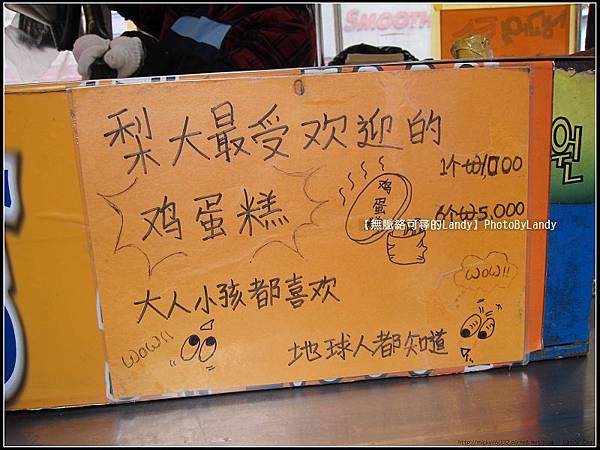 SMOOTH
梨大最受欢迎的
鸡蛋糕
鸡蛋
1个₩1,000
6个₩5,000
원
【無脈絡可尋的Landy】PhotoByLandy
大人小孩都喜欢
WOW!!
WOW!!
地球人都知道